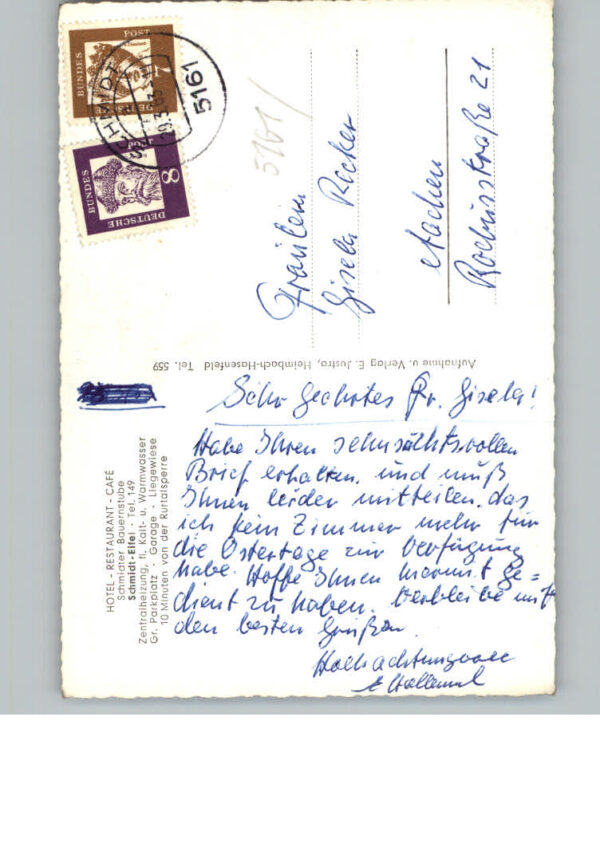 HOTEL - RESTAURANT - CAFÉ
Schmidter Bauernstube
Schmidt-Eifel · Tel. 149
Zentralheizung, fl. Kalt- u. Warmwasser
Gr. Parkplatz · Garage · Liegewiese
10 Minuten von der Rurtalsperre
Sehr geehrtes Fr. Gisela!
Habe Ihren sehnsüchtsvollen
Brief erhalten, und muß
Ihnen leider mitteilen, das
ich kein Zimmer mehr für
die Ostertage zur Verfügung
habe. Hoffe Ihnen hiermit ge=
dient zu haben. Verbleibe mit
den besten Grüßen
Hochachtungsvoll
Aufnahme u. Verlag E. Justra, Heimbach-Hasenfeld Tel. 559
DEUTSCHE
BUNDES
POST
DEUTSCHE
BUNDES
8
SCHMIDT
5161
5161/
Fräulein
Gisela Ricker
Aachen
Rochusstraße 21